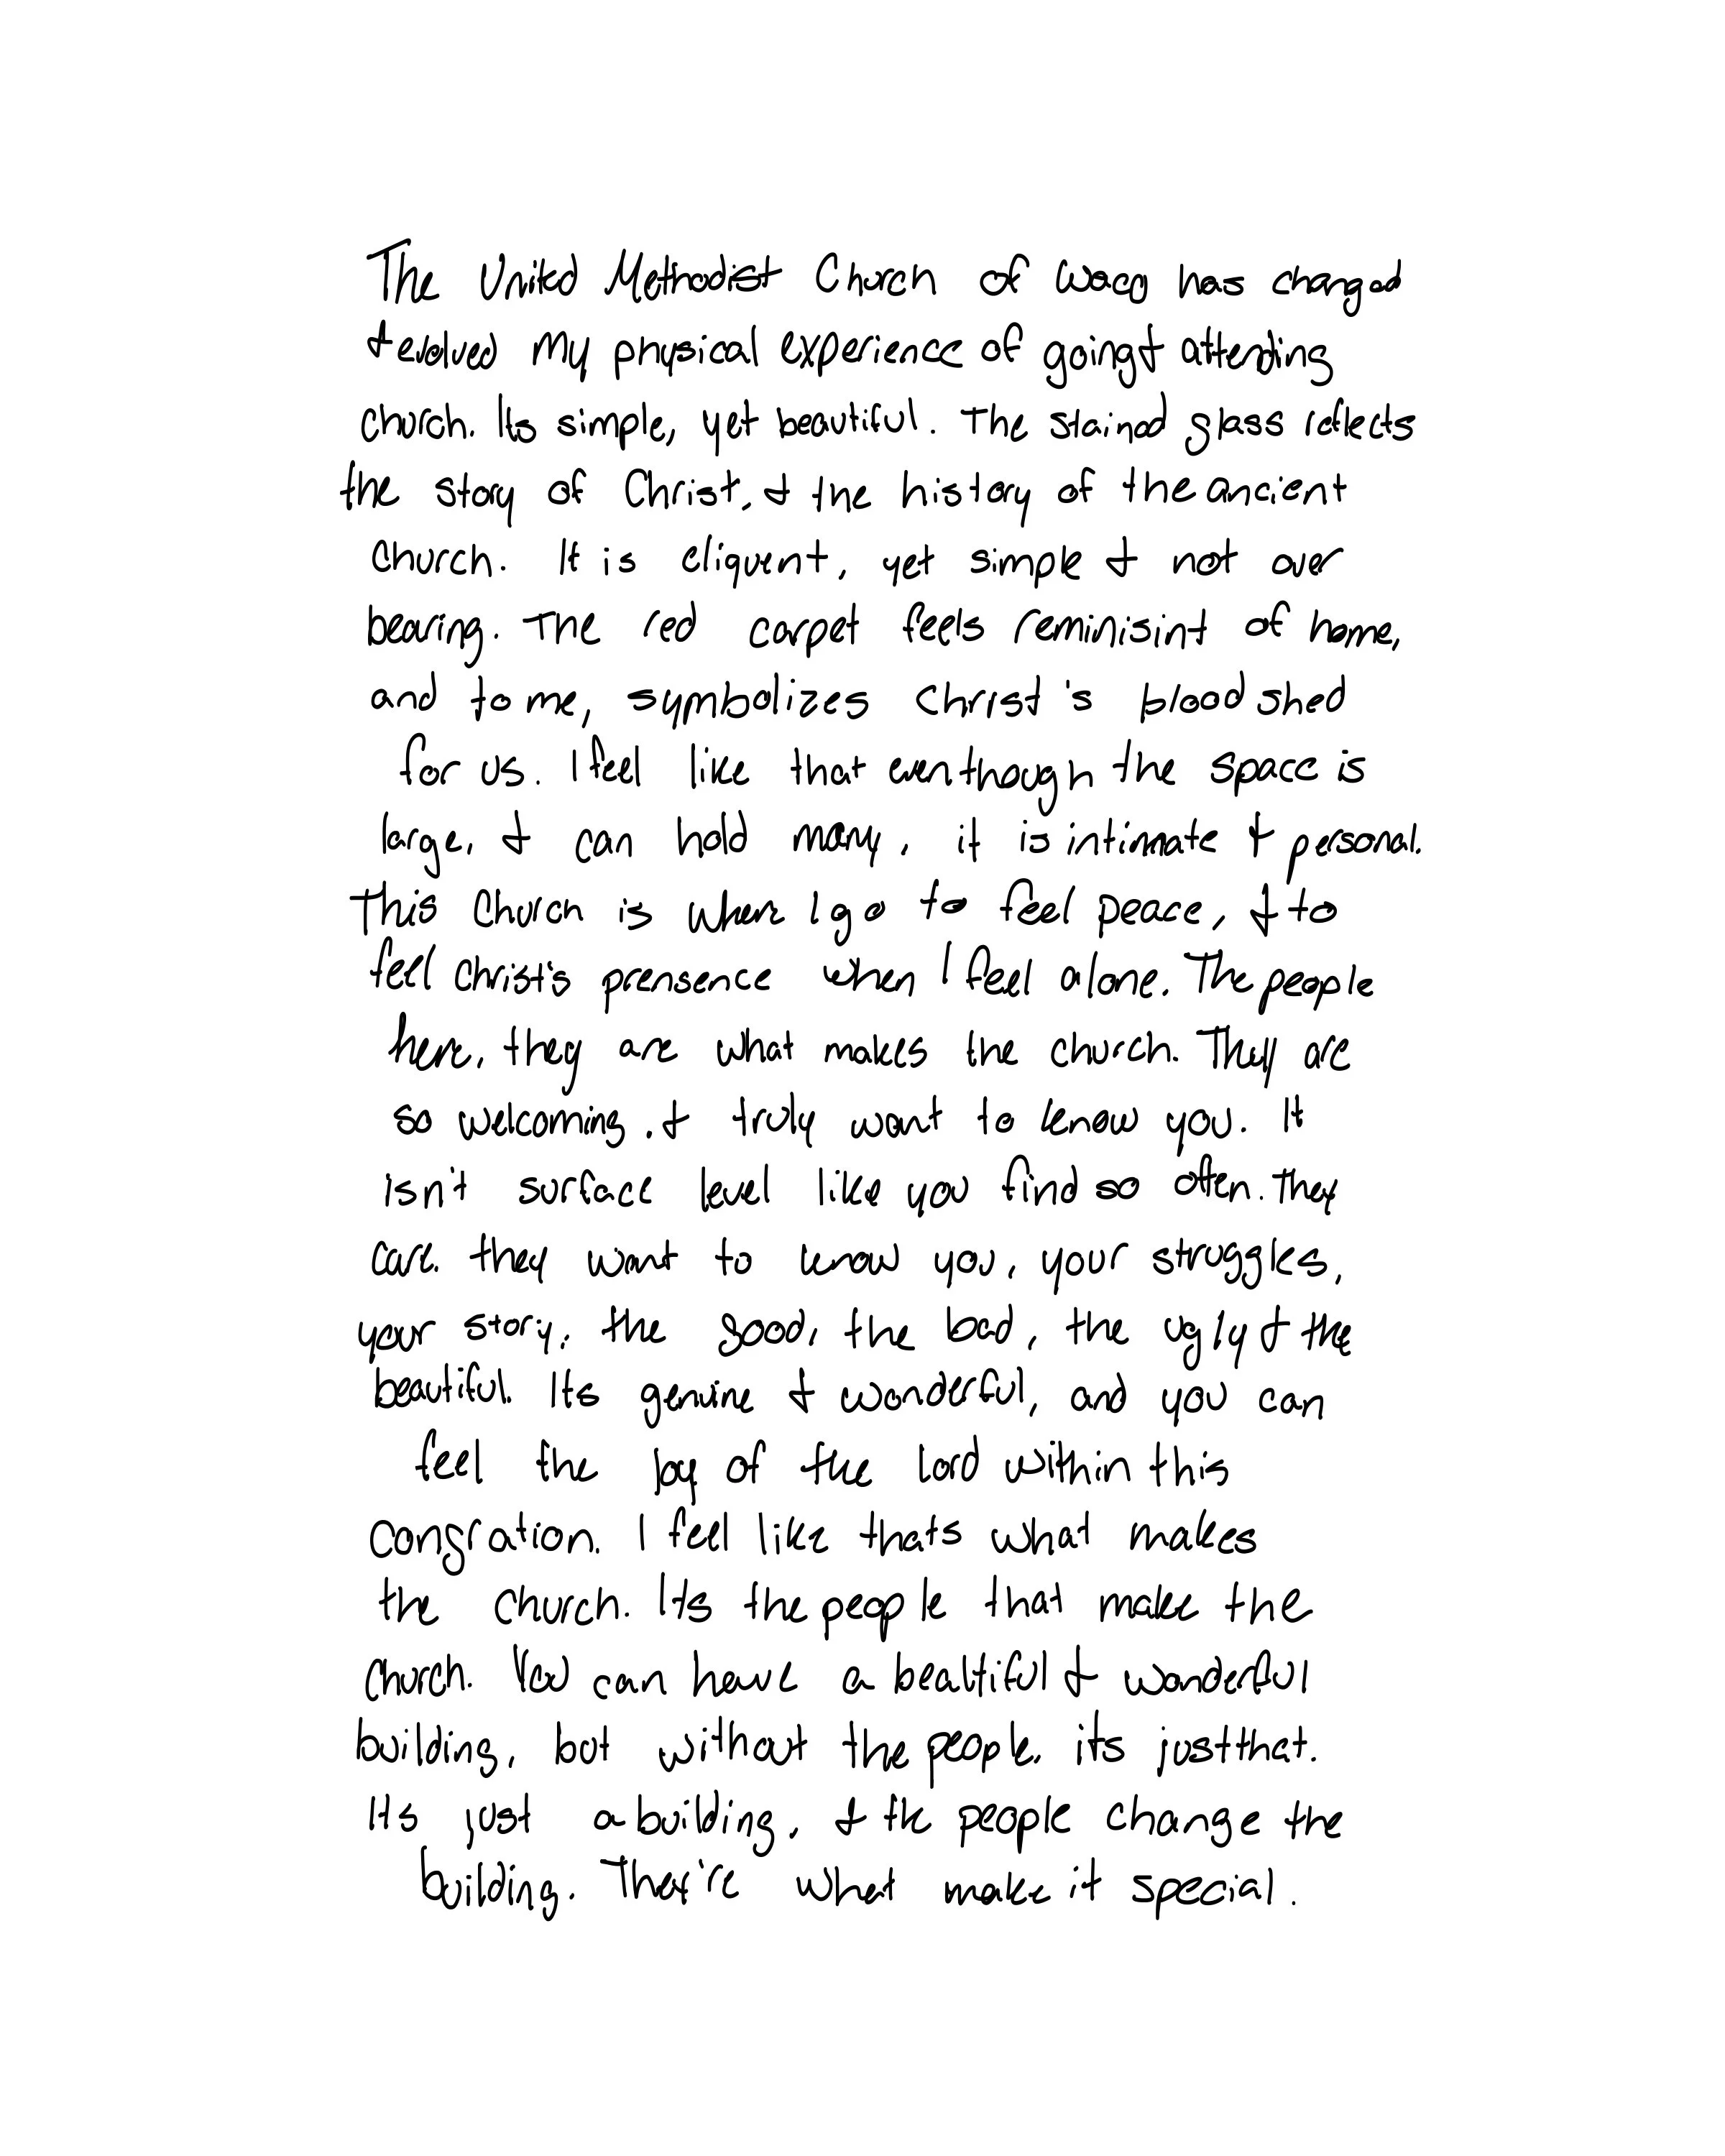 The United Methodist Church of Waco has changed
& evolved my physical experience of going & attending
church. Its simple, yet beautiful. The stained glass reflects
the story of Christ, & the history of the ancient
church. It is eliquent, yet simple & not over
bearing. The red carpet feels reminisint of home,
and to me, symbolizes Christ's blood shed
for us. I feel like that even though the space is
large, & can hold many, it is intimate & personal.
This Church is where I go to feel peace, & to
feel Christ's prensence when I feel alone. The people
here, they are what makes the church. They are
so welcoming, & truly want to know you. It
isn't surface level like you find so often. They
care. they want to know you, your struggles,
your story, the good, the bad, the ugly & the
beautiful. Its genuine & wonderful, and you can
feel the joy of the Lord within this
congration. I feel like thats what makes
the church. Its the people that make the
church. You can have a beautiful & wonderful
building, but without the people, its just that.
Its just a building, & the people change the
building. They're what make it special.